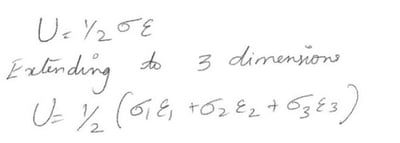 U = 1/2 σε
Extending to 3 dimensions
U = 1/2 (σ₁ε₁ + σ₂ε₂ + σ₃ε₃)